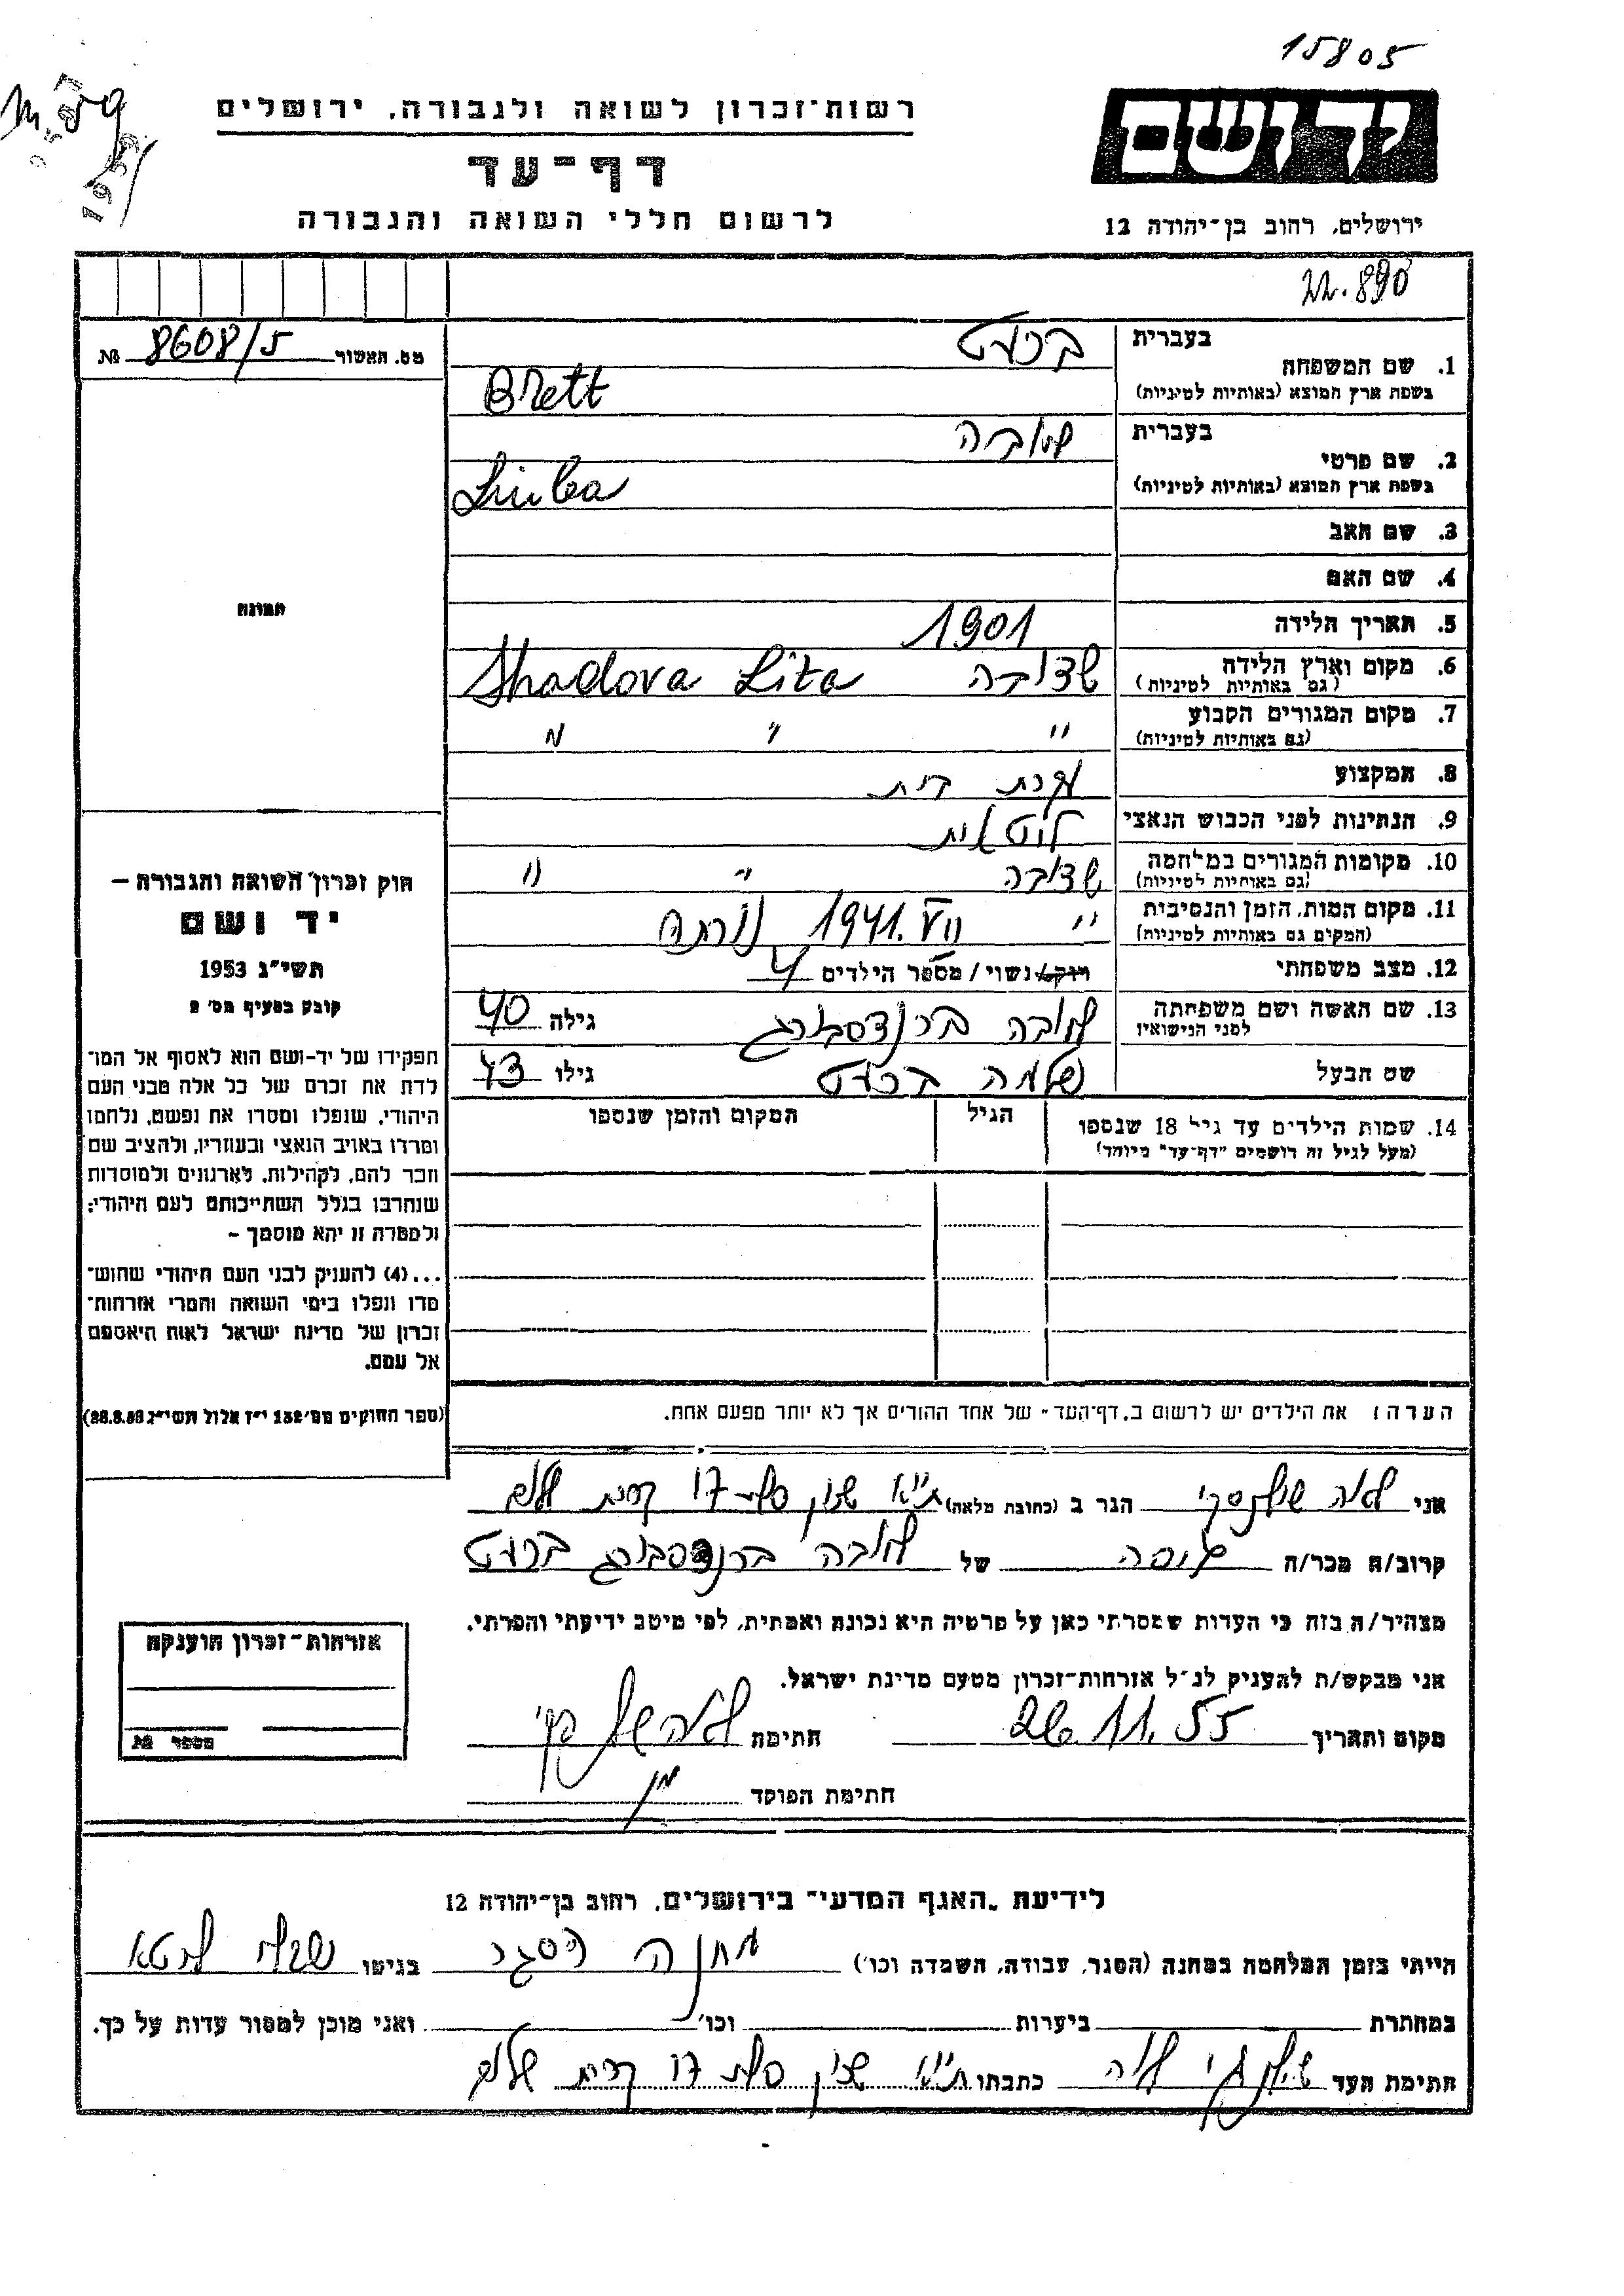 15805
רשות־זכרון לשואה ולגבורה, ירושלים
יד ושם
דף־עד
לרשום חללי השואה והגבורה
ירושלים, רחוב בן־יהודה 12
22.890
מס. האשור 8608/5 №
בעברית ברעט
1. שם המשפחה
בשפת ארץ המוצא (באותיות לטיניות) Brett
בעברית ליובה
2. שם פרטי
בשפת ארץ המוצא (באותיות לטיניות) Liuba
3. שם האב
4. שם האם
תמונה
5. תאריך הלידה 1901
6. מקום וארץ הלידה שדובה Shadova Lita
(גם באותיות לטיניות)
7. מקום המגורים הקבוע " " "
(גם באותיות לטיניות)
8. המקצוע עקרת בית
9. הנתינות לפני הכבוש הנאצי ליטאית
10. מקומות המגורים במלחמה שדובה " "
(גם באותיות לטיניות)
11. מקום המות, הזמן והנסיבות " 1941.VII נורתה
(המקום גם באותיות לטיניות)
12. מצב משפחתי רווק/נשוי/מספר הילדים 4
13. שם האשה ושם משפחתה ליובה ברנדסבורג גילה 40
לפני הנישואין
שם הבעל שלמה ברעט גילו 43
14. שמות הילדים עד גיל 18 שנספו הגיל המקום והזמן שנספו
(מעל לגיל זה רושמים "דף־עד" מיוחד)
חוק זכרון השואה והגבורה –
יד ושם
תשי״ג 1953
קובע בסעיף מס׳ 2
תפקידו של יד־ושם הוא לאסוף אל המו־
לדת את זכרם של כל אלה מבני העם
היהודי, שנפלו ומסרו את נפשם, נלחמו
ומרדו באויב הנאצי ובעוזריו, ולהציב שם
וזכר להם, לקהילות, לארגונים ולמוסדות
שנחרבו בגלל השתייכותם לעם היהודי;
ולמטרה זו יהא מוסמך –
...(4) להעניק לבני העם היהודי שהוש־
מדו ונפלו בימי השואה והמרי אזרחות־
זכרון של מדינת ישראל לאות היאספם
אל עמם.
(ספר החוקים מס׳ 132 י״ז אלול תשי״ג 28.8.53)
הערה: את הילדים יש לרשום ב„דף־העד״ של אחד ההורים אך לא יותר מפעם אחת.
אני לאה הגר ב (כתובת מלאה) ת״א 17 קרית שלום
קרוב/ה מכר/ה גיסה של ליובה ברנדסבורג ברעט
מצהיר/ה בזה כי העדות שמסרתי כאן על פרטיה היא נכונה ואמתית, לפי מיטב ידיעתי והכרתי.
אני מבקש/ת להעניק לנ״ל אזרחות־זכרון מטעם מדינת ישראל.
אזרחות־זכרון הוענקה
מספר №
מקום ותאריך 26.11.55 חתימת
חתימת הפוקד
לידיעת „האגף המדעי״ בירושלים, רחוב בן־יהודה 12
הייתי בזמן המלחמה במחנה (הסגר, עבודה, השמדה וכו׳) מחנה הסגר בגיטו שבלי ליטא
במחתרת ביערות וכו׳ ואני מוכן למסור עדות על כך.
חתימת העד לאה כתבתו ת״א 17 קרית שלום